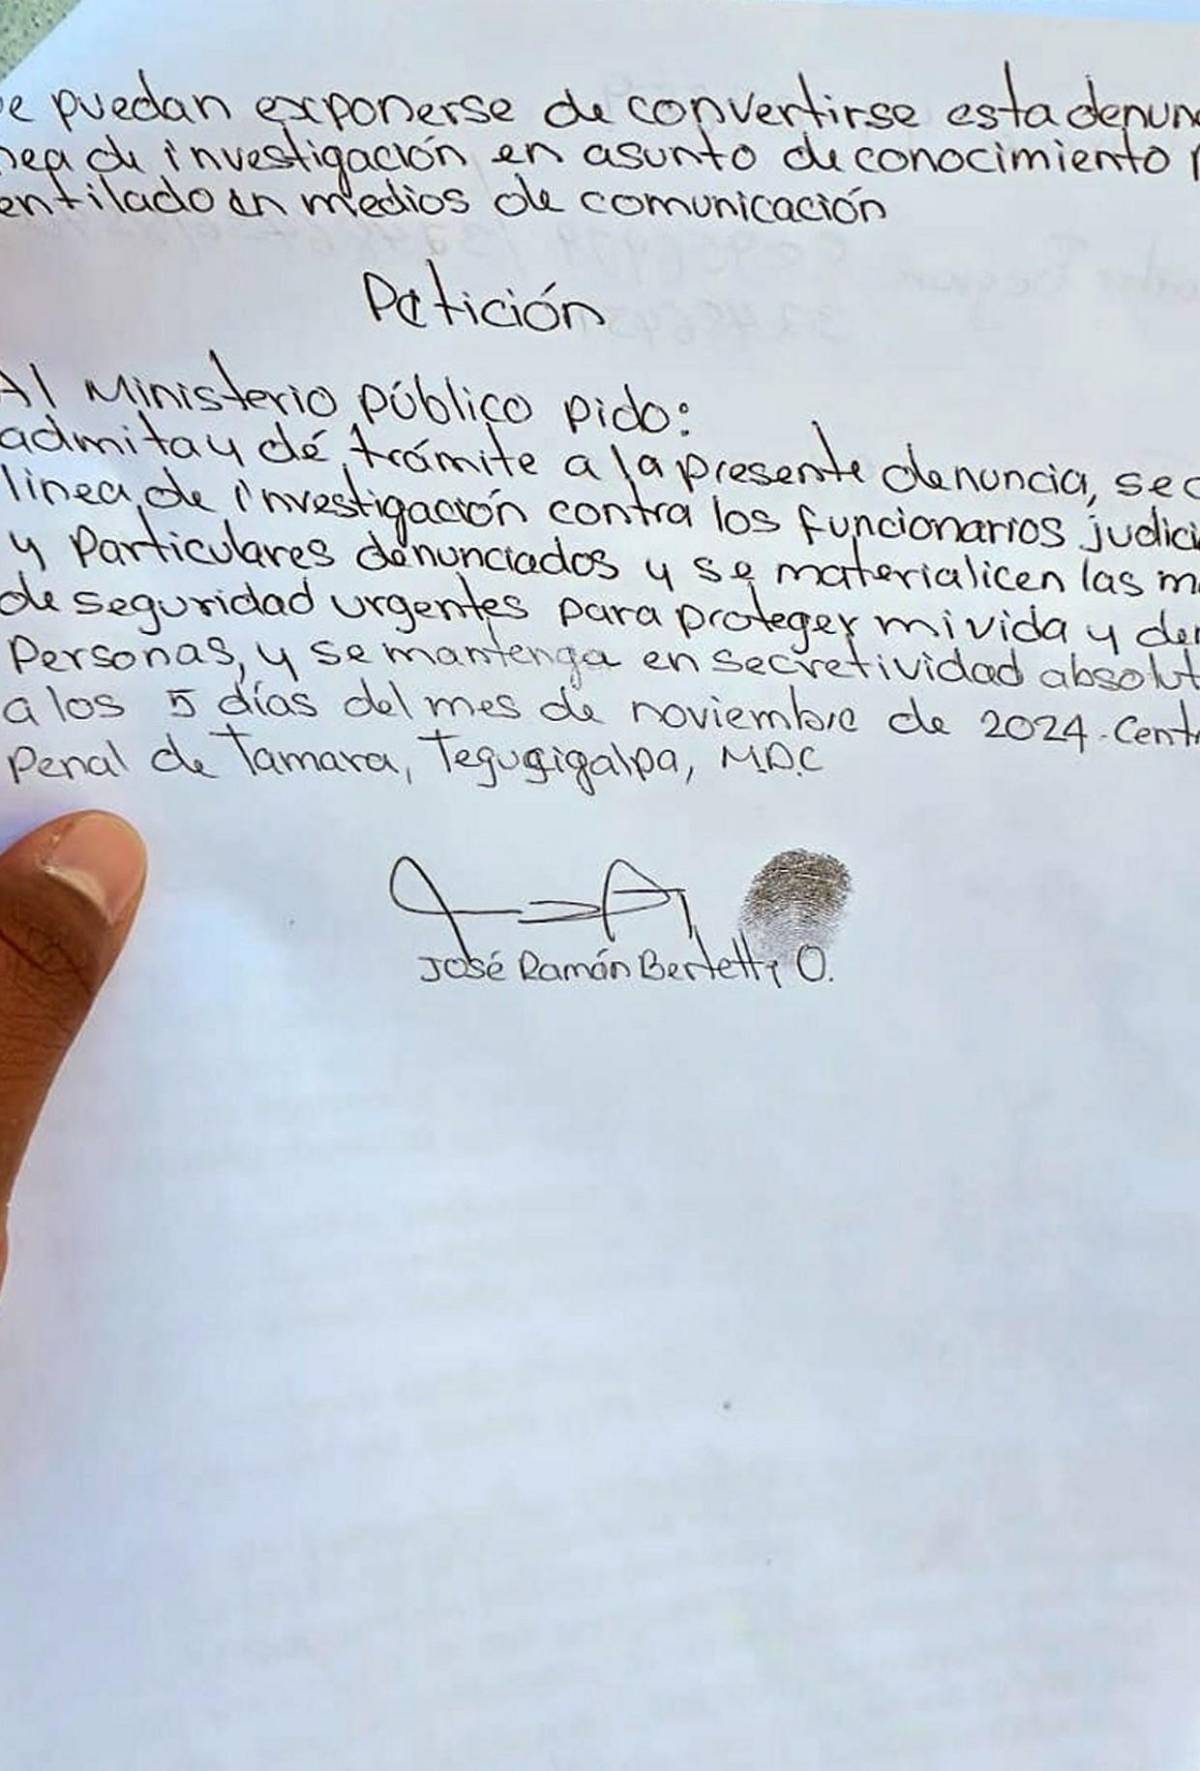 e puedan exponerse de convertirse esta denun
nea de investigación en asunto de conocimiento
entilado en medios de comunicación
Petición
Al Ministerio público pido:
admita y dé trámite a la presente denuncia, se
linea de investigación contra los funcionarios judici
y Particulares denunciados y se materialicen las m
de seguridad urgentes para proteger mi vida y de
Personas, y se mantenga en secretividad absolut
a los 5 días del mes de noviembre de 2024. Cent
Penal de Tamara, Tegugigalpa, M.D.C
José Ramón Bertetty O.